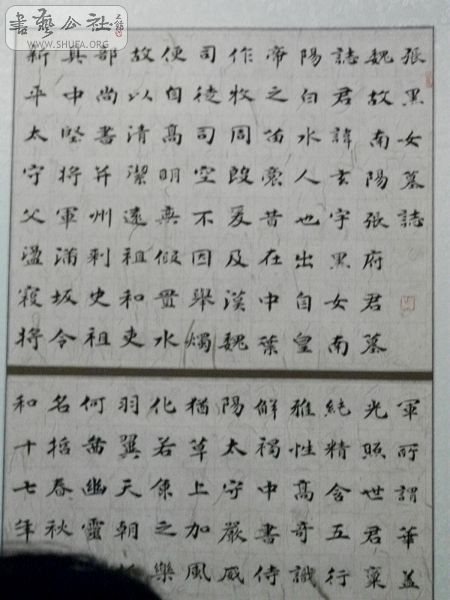 書藝公社
WWW.SHUFA.ORG
张黑女墓誌
魏故南陽张府君墓
誌君諱玄字黑女南
陽白水人也出自皇
帝之苗裔昔在中葉
作牧周殷爰及漢魏
司徒司空不因舉燭
便自高明無假置水
故以清潔遠祖和吏
部尚書并州刺史祖
具中堅将軍滿坂令
新平太守父盪寇将
軍所謂華蓋
光照世君稟
純精含五行
雅性高奇識
解褐中書侍
陽太守嚴威
猶草上加風
化若像之樂
羽翼天朝
何啚幽靈
名括春秋
和十七年